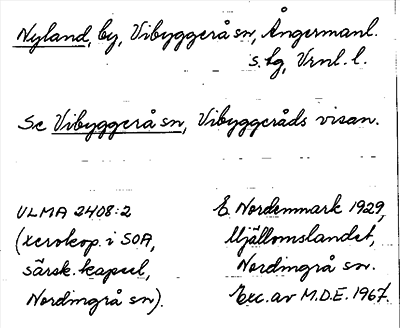 Nyland, by, Vibyggerå sn, Ångermanl.
s. lg, Vrnl. l.
Se Vibyggerå sn, Vibyggeråds visan.
ULMA 2408:2
(xerokop. i SOA,
särsk. kapsel,
Nordingrå sn).
E Nordenmark 1929,
Mjällomslandet,
Nordingrå sn.
Exc. av M.D.E. 1967.